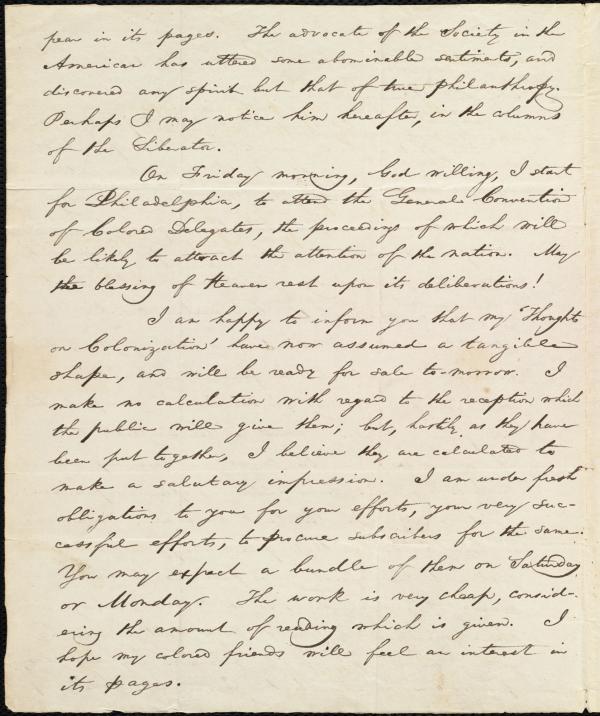 pear in its pages. The advocate of the Society in the
American has uttered some abominable sentiments, and
discovered any spirit but that of true philanthropy.
Perhaps I may notice him hereafter, in the columns
of the Liberator.
On Friday morning, God willing, I start
for Philadelphia, to attend the General Convention
of Colored Delegates, the proceedings of which will
be likely to attract the attention of the nation. May
the blessing of Heaven rest upon its deliberations!
I am happy to inform you that my 'Thoughts
on Colonization' have now assumed a tangible
shape, and will be ready for sale to-morrow. I
make no calculation with regard to the reception which
the public will give them; but, hastily as they have
been put together, I believe they are calculated to
make a salutary impression. I am under fresh
obligations to you for your efforts, your very suc-
cessful efforts, to procure subscribers for the same.
You may expect a bundle of them on Saturday
or Monday. The work is very cheap, consid-
ering the amount of reading which is given. I
hope my colored friends will feel an interest in
its pages.